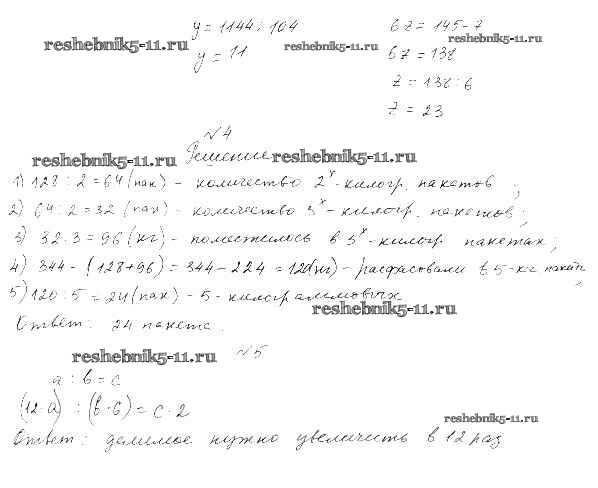 y = 1144 : 104
6z = 145 - 7
reshebnik5-11.ru
reshebnik5-11.ru
reshebnik5-11.ru
y = 11
6z = 138
z = 138 : 6
z = 23
№4
reshebnik5-11.ru
Решение
reshebnik5-11.ru
1) 128 : 2 = 64 (пак) - количество 2х-килогр. пакетов ;
2) 64 : 2 = 32 (пак) - количество 3х-килогр. пакетов ;
3) 32 · 3 = 96 (кг) - поместилось в 3х-килогр пакетах ;
4) 344 - (128 + 96) = 344 - 224 = 120 (кг) - расфасовали в 5-кг пакеты ;
5) 120 : 5 = 24 (пак) - 5-килограммовых
reshebnik5-11.ru
Ответ: 24 пакета.
reshebnik5-11.ru
№5
a : b = c
(12·a) : (b·6) = c·2
reshebnik5-11.ru
Ответ: делимое нужно увеличить в 12 раз